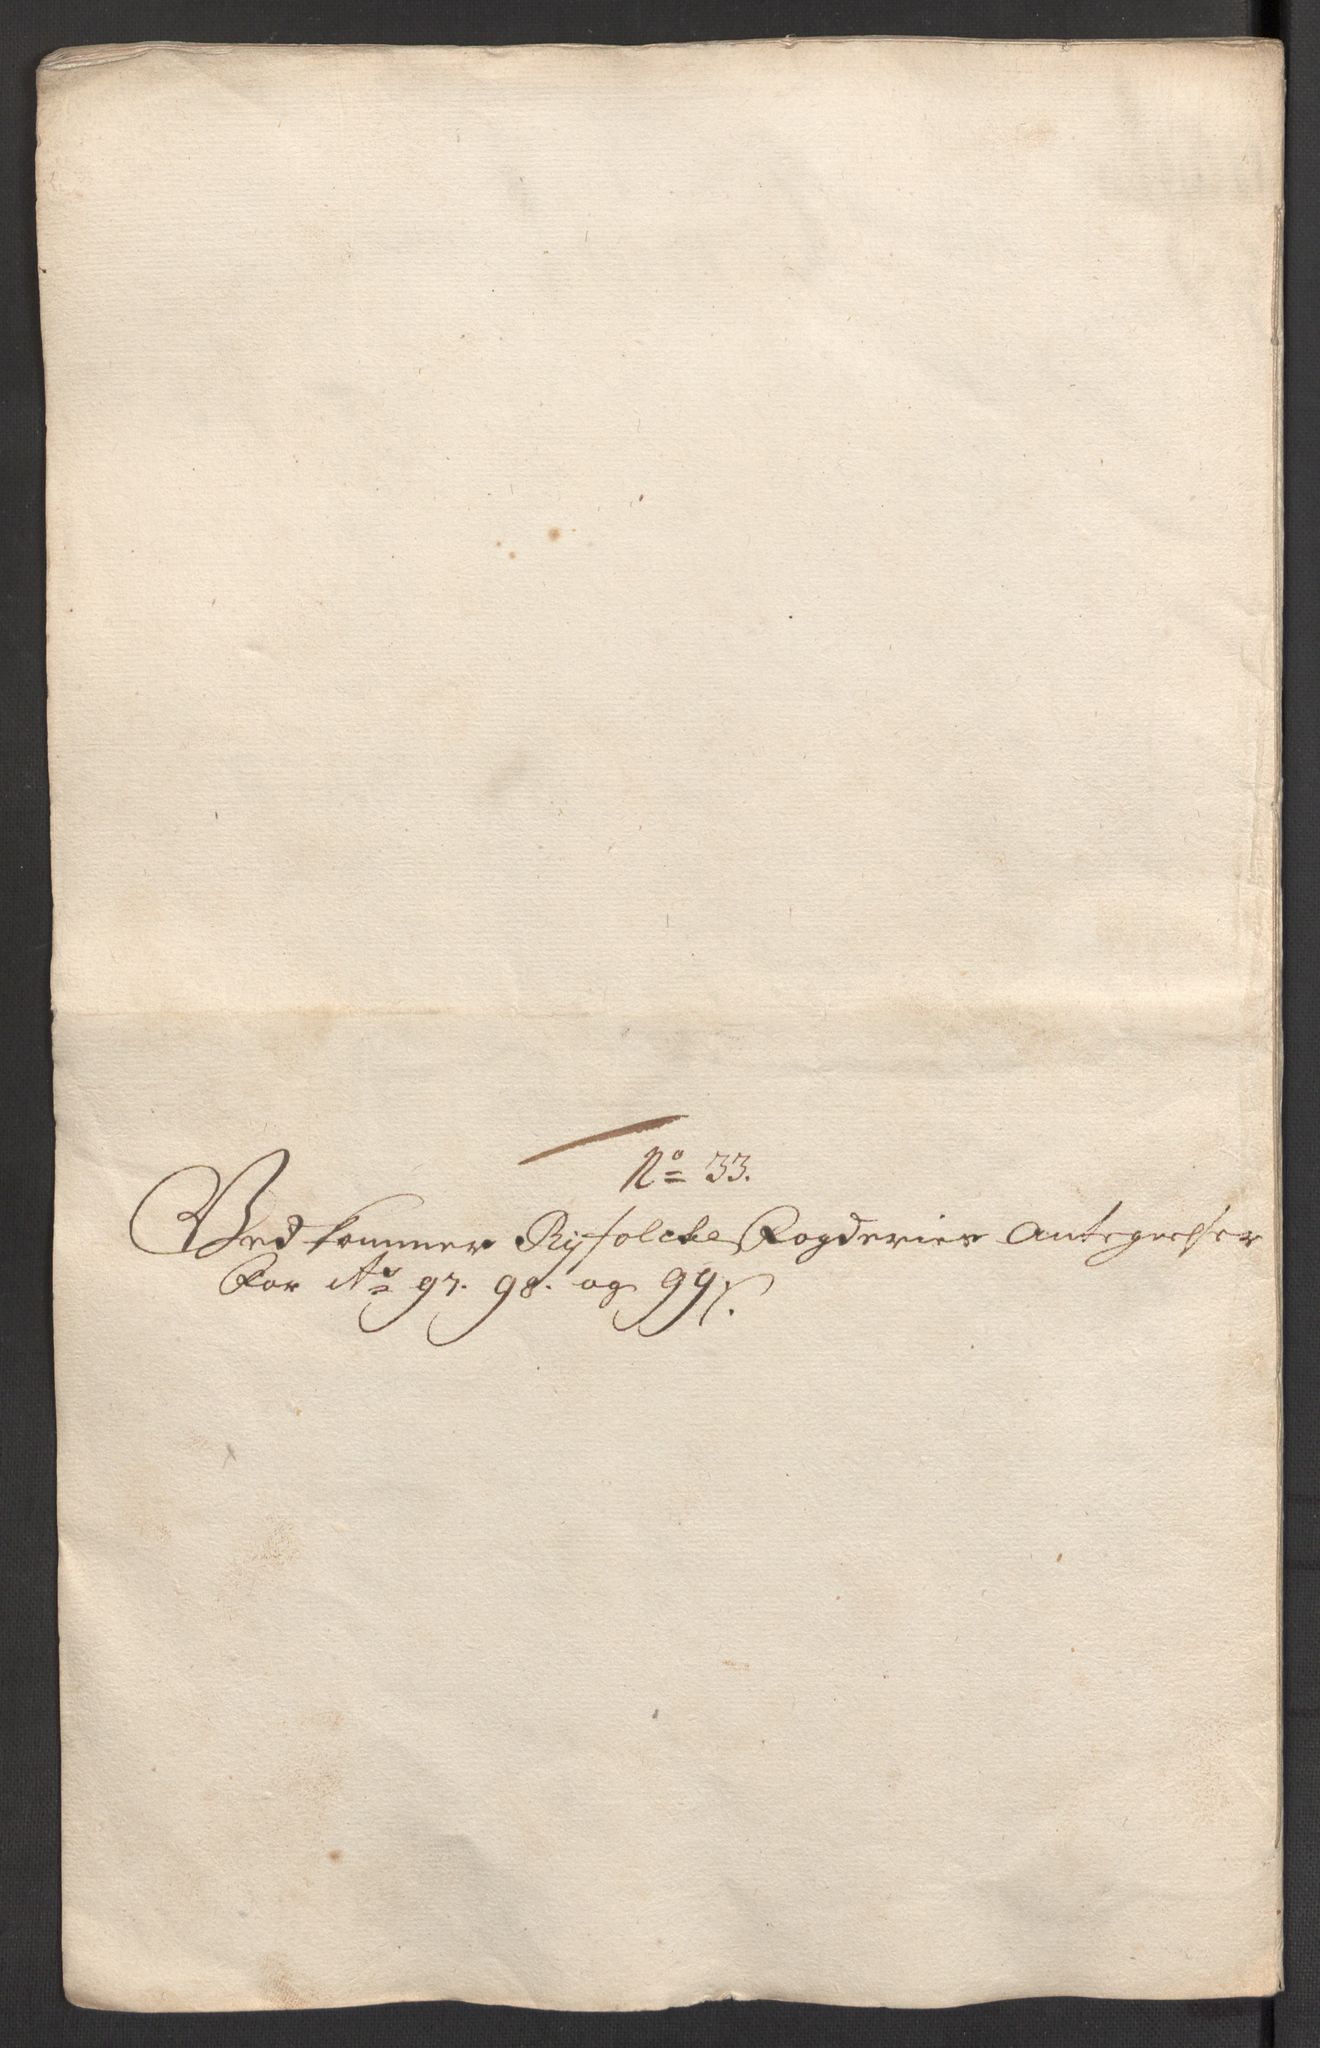 No 33.
Vedkommer Ryfolcke Fogderies Antegnelser
For Ao 97. 98. og 99.